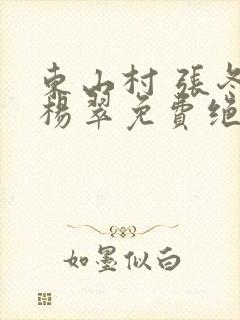 東山村 張冬
楊翠免費絕
如墨似白